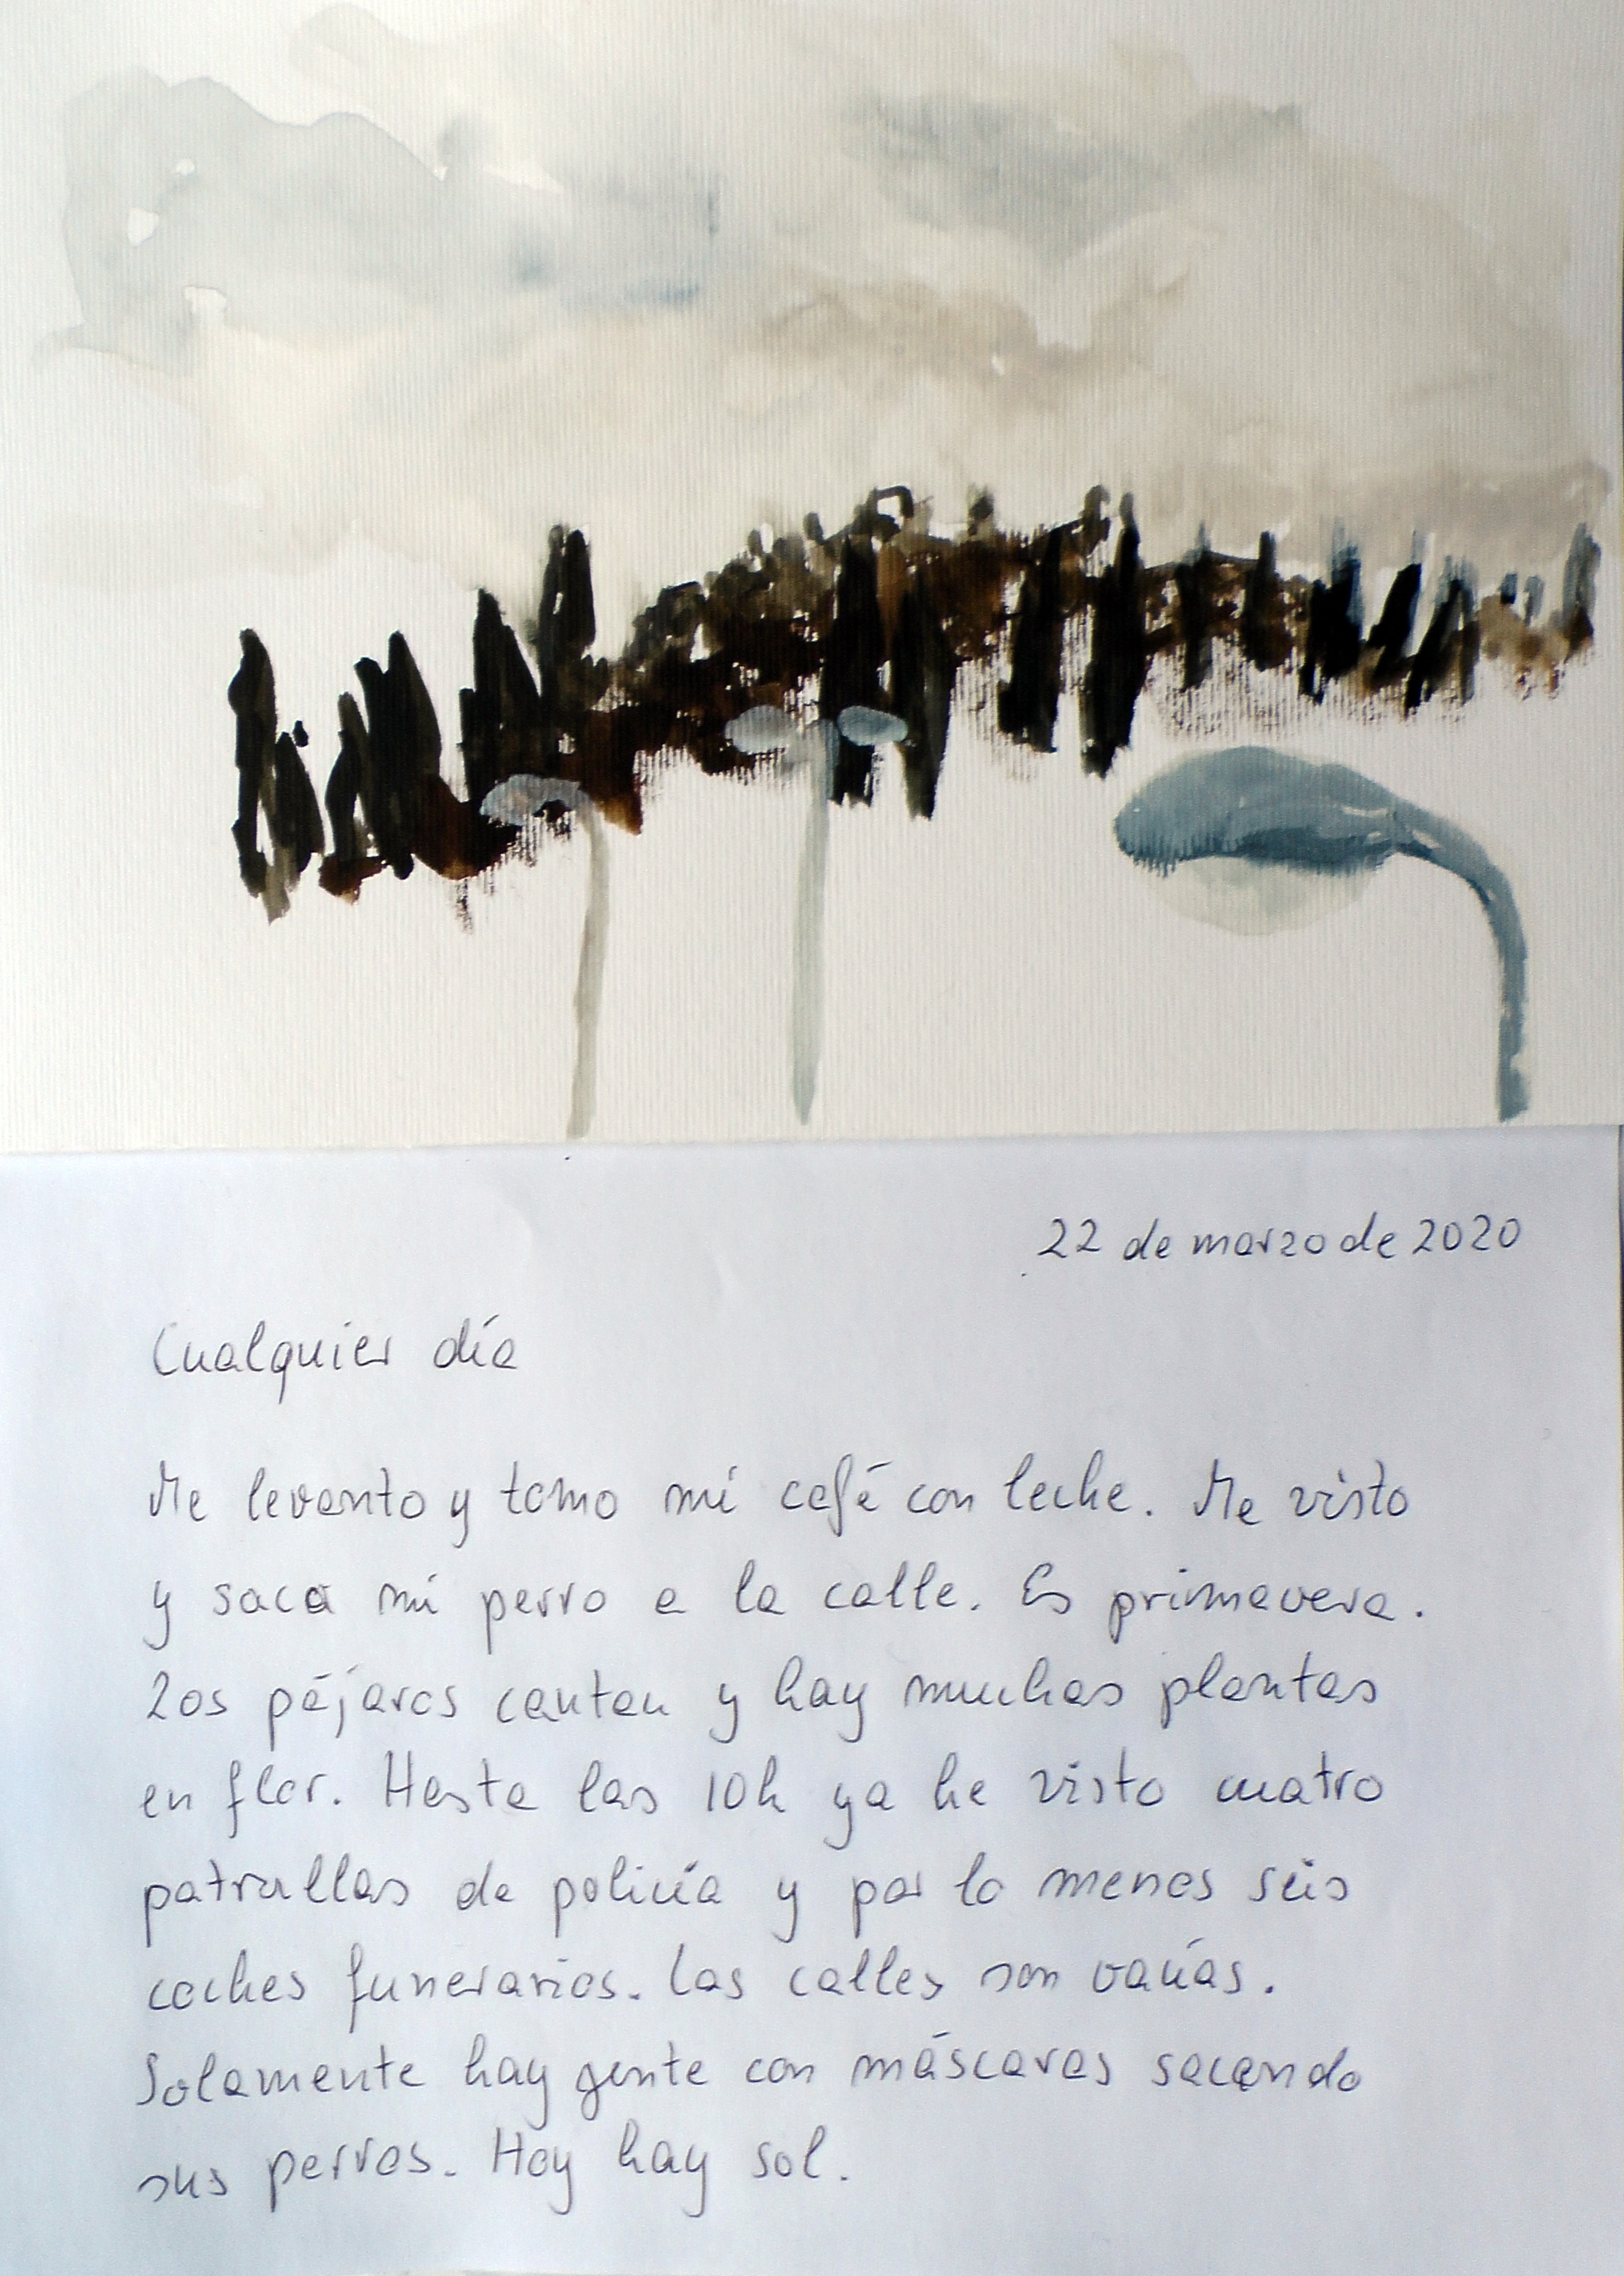 22 de marzo de 2020
Cualquier día
Me levanto y tomo mi café con leche. Me visto
y saco mi perro a la calle. Es primavera.
Los pájaros cantan y hay muchas plantas
en flor. Hasta las 10h ya he visto cuatro
patrullas de policía y por lo menos seis
coches funerarios. Las calles son vacías.
Solamente hay gente con máscaras sacando
sus perros. Hoy hay sol.